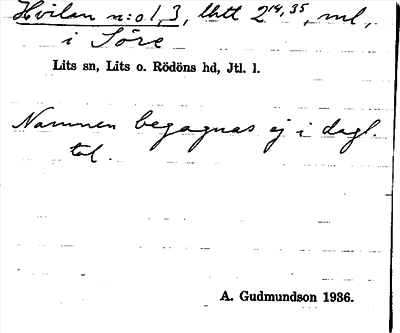 Hvilan n:o 1,3, lhtt 2¹⁴,³⁵, ml,
i Söre
Lits sn, Lits o. Rödöns hd, Jtl. l.
Namnen begagnas ej i dagl.
tal.
A. Gudmundson 1936.